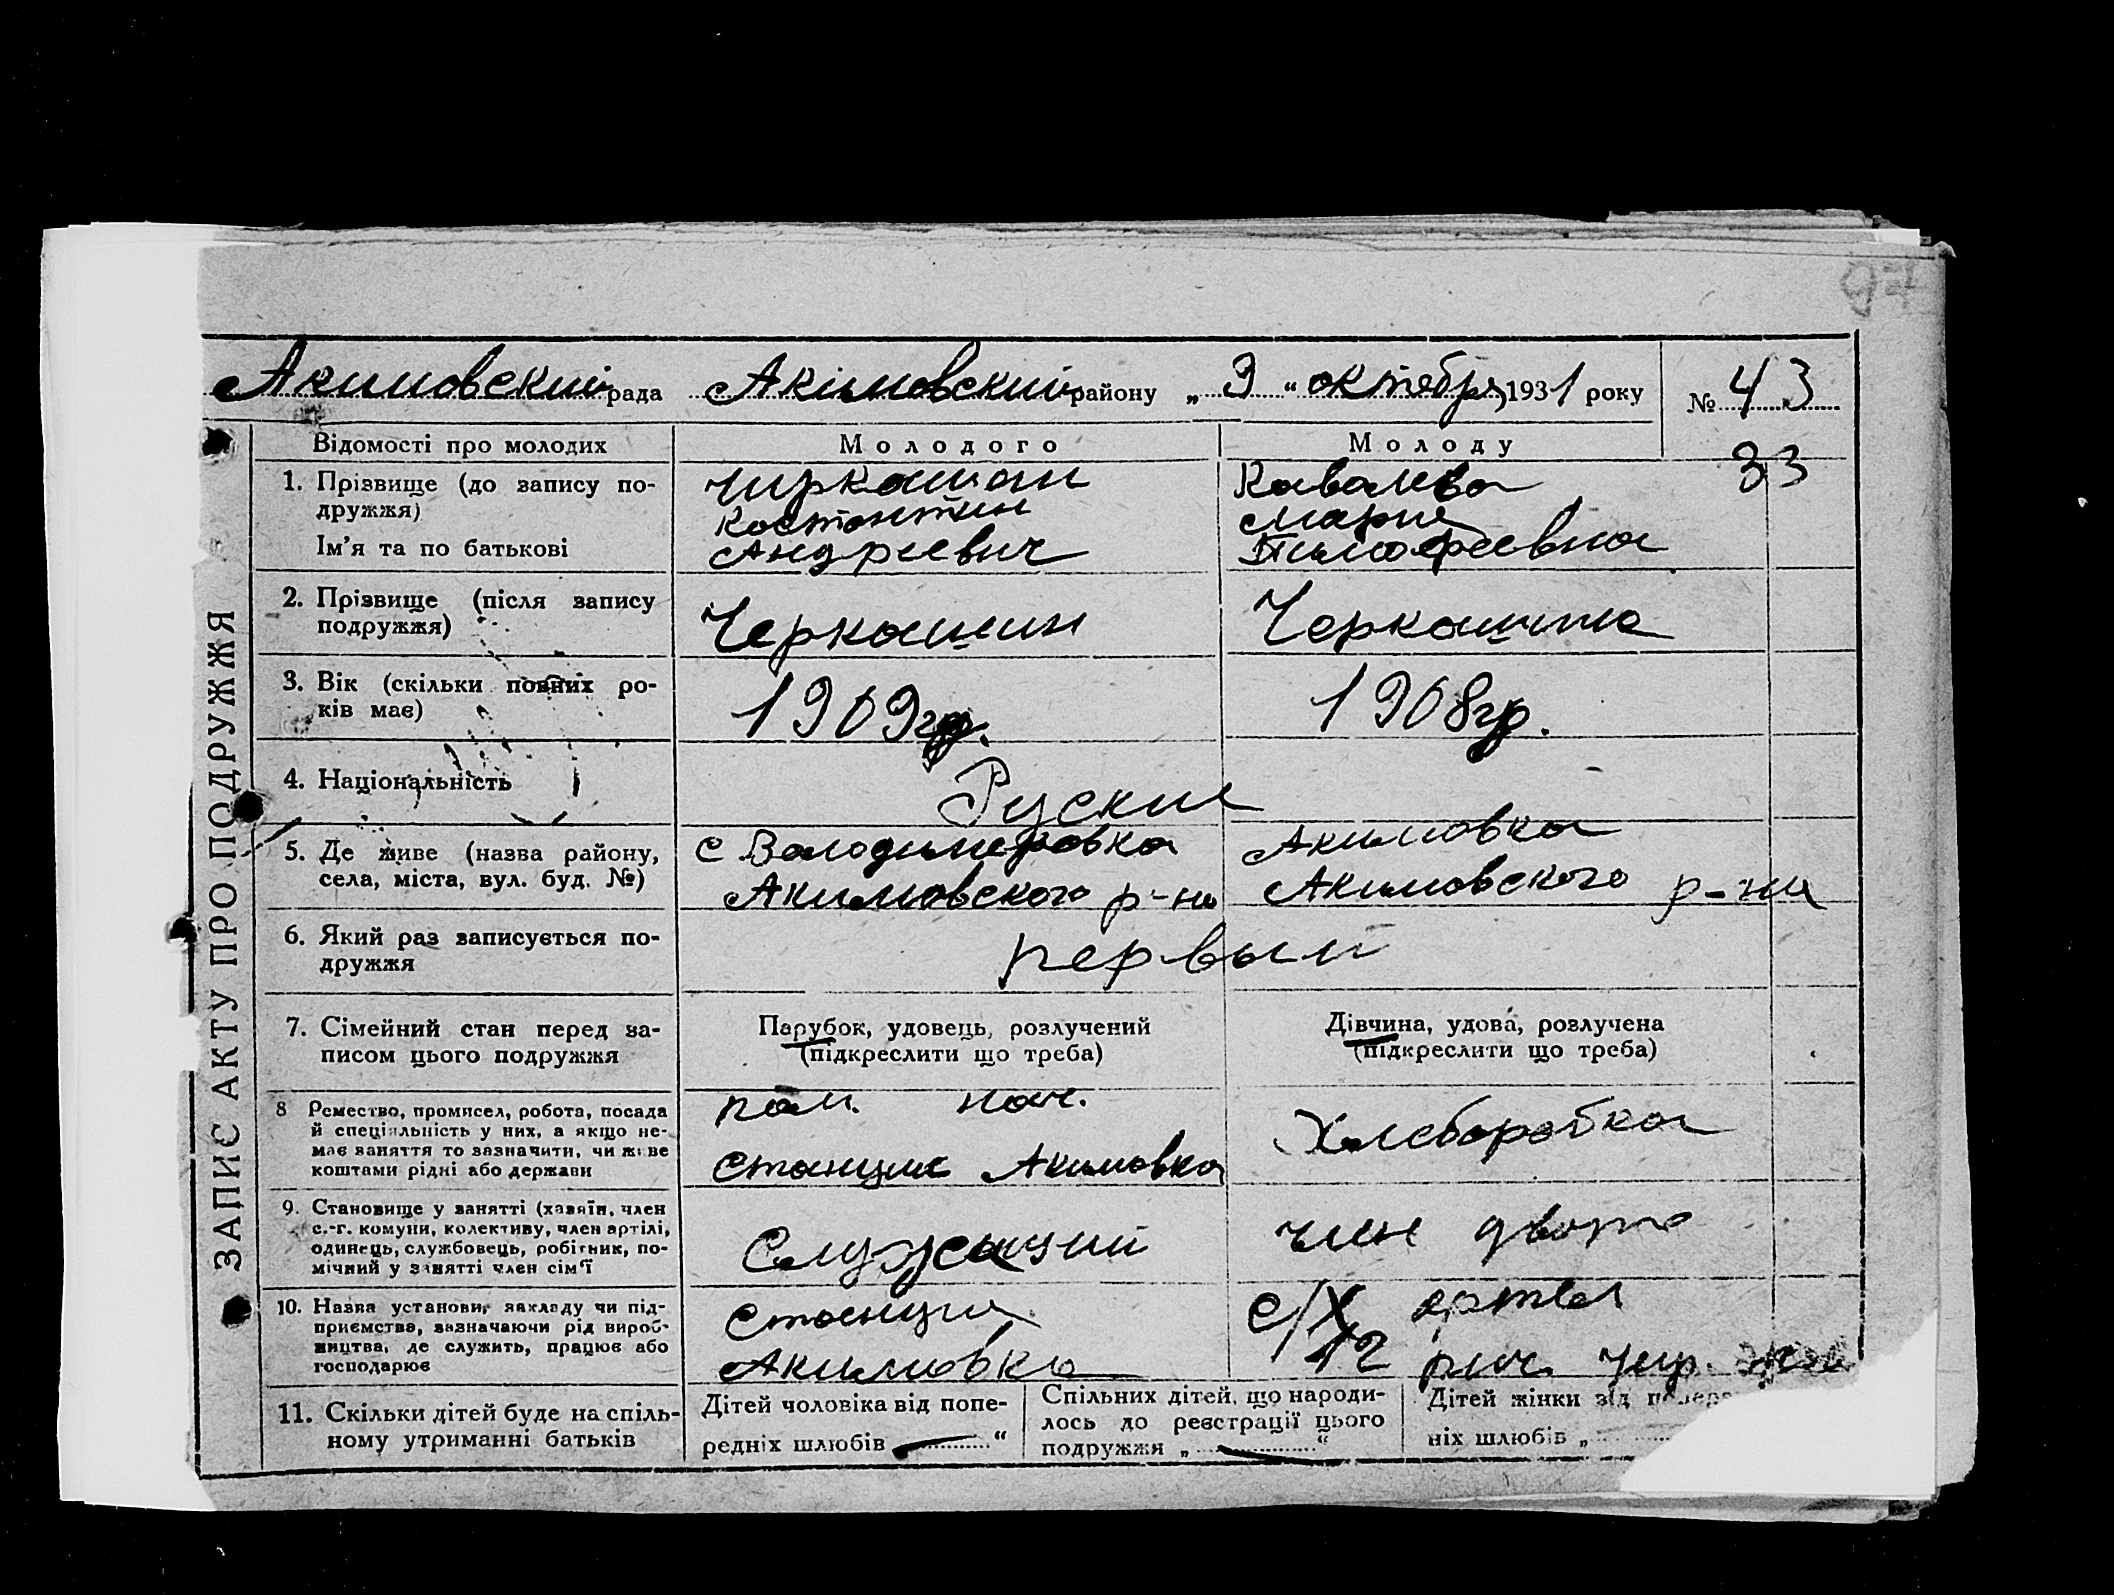 Акимовский рада Акімовский району „ 9 “ октября 1931 року № 43
33
ЗАПИС АКТУ ПРО ПОДРУЖЖЯ
Відомості про молодих
Молодого
Молоду
1. Прізвище (до запису по-
дружжя)
Ім'я та по батькові
Чиркашан
Костантин
Андреевич
Кавалева
Мария
Тимофеевна
2. Прізвище (після запису
подружжя)
Черкашин
Черкашина
3. Вік (скільки повних ро-
ків має)
1909 гр.
1908 гр.
4. Національність
Руские
5. Де живе (назва району,
села, міста, вул. буд. №)
с Володимеровка
Акимовского р-на
Акимовка
Акимовского р-на
6. Який раз записується по-
дружжя
первый
7. Сімейний стан перед за-
писом цього подружжя
Парубок, удовець, розлучений
(підкреслити що треба)
Дівчина, удова, розлучена
(підкреслити що треба)
8 Ремество, промисел, робота, посада
й спеціяльність у них, а якщо не-
має заняття то зазначити, чи живе
коштами рідні або держави
пом. нач.
Станции Акимовка
Хлеборобка
9. Становище у занятті (хазяїн, член
с.-г. комуни, колективу, член артілі,
одинець, службовець, робітник, по-
мічний у занятті член сім'ї
Служащий
член двора
10. Назва установи, закладу чи під-
приємства, зазначаючи рід вироб-
ництва, де служить, працює або
господарює
Станция
Акимовка
с/х артел
12 рич.
11. Скільки дітей буде на спіль-
ному утриманні батьків
Дітей чоловіка від попе-
редніх шлюбів “
Спільних дітей, що народи-
лось до реєстрації цього
подружжя „ “
Дітей жінки від
ніх шлюбів „